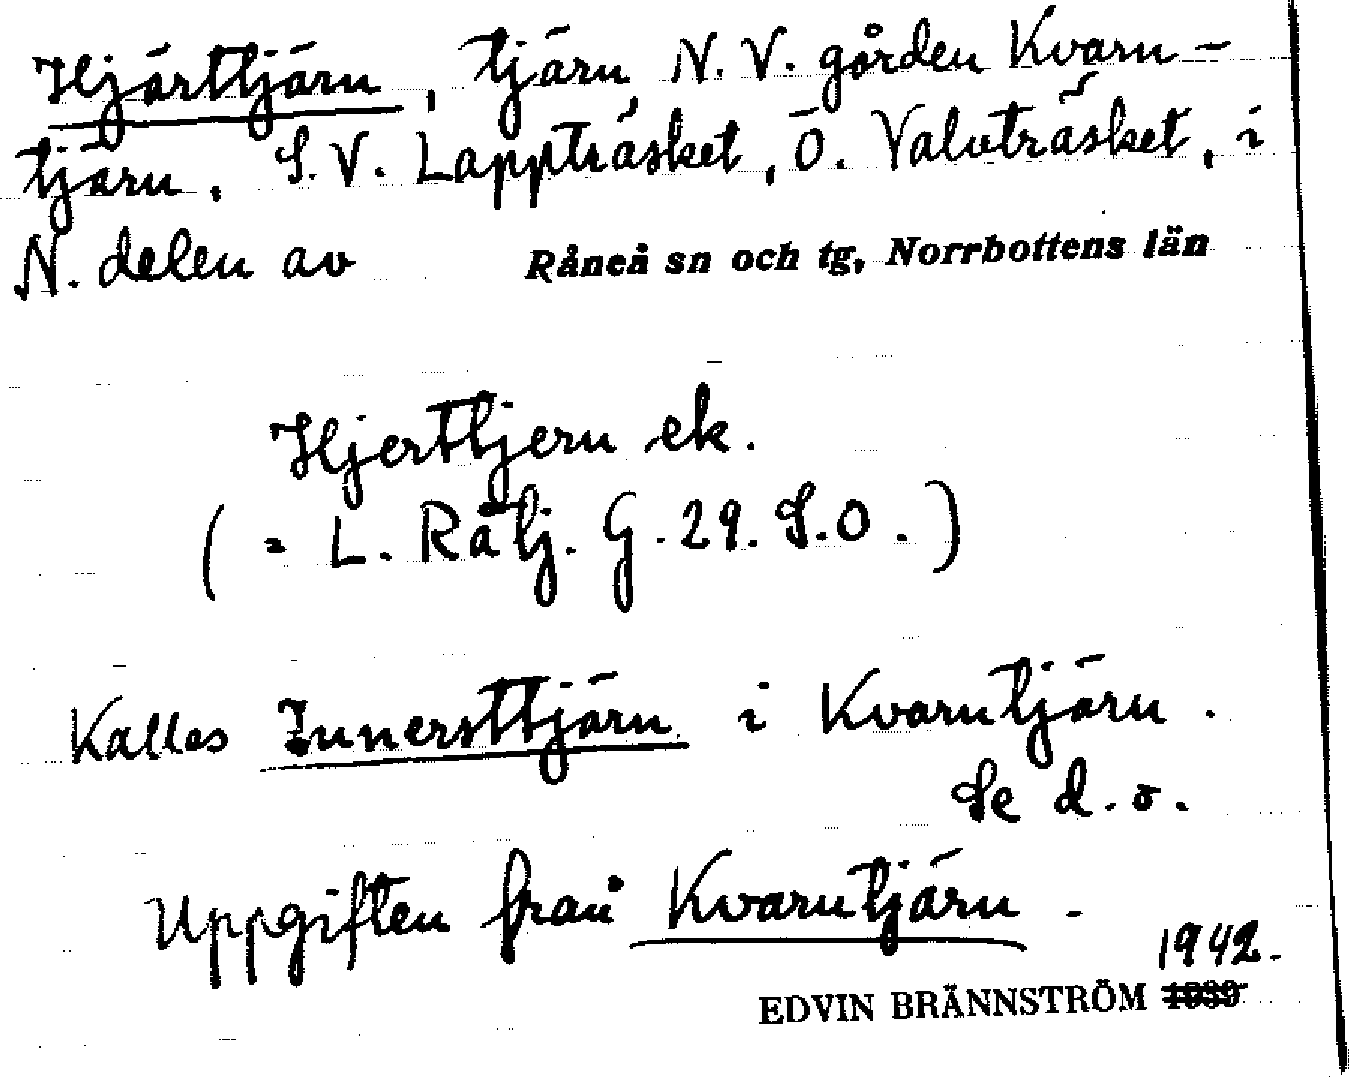 Hjärttjärn, tjärn, N.V. gården Kvarn-
tjärn, S.V. Lappträsket, Ö. Valvträsket, i
N. delen av Råneå sn och tg, Norrbottens län
Hjerttjern ek.
(= L. Rålj. G. 29. S.O.)
Kallas Innersttjärn i Kvarntjärn.
Se d.o.
Uppgiften från Kvarntjärn.
1942.
EDVIN BRÄNNSTRÖM 1939